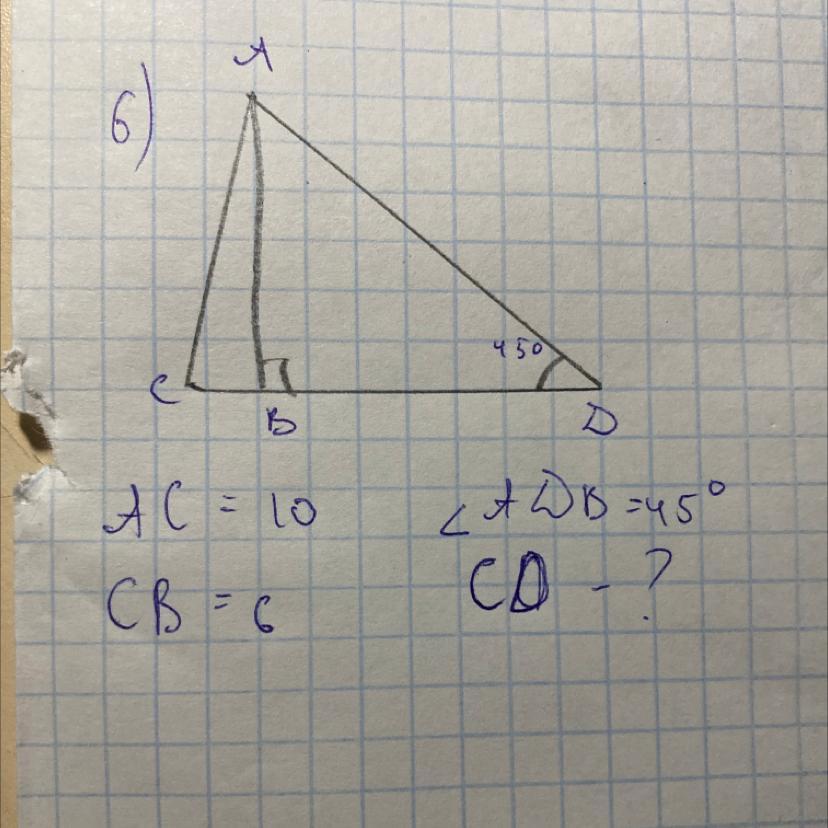 6)
A
45°
C
B
D
AC = 10
∠ADB = 45°
CB = 6
CD - ?